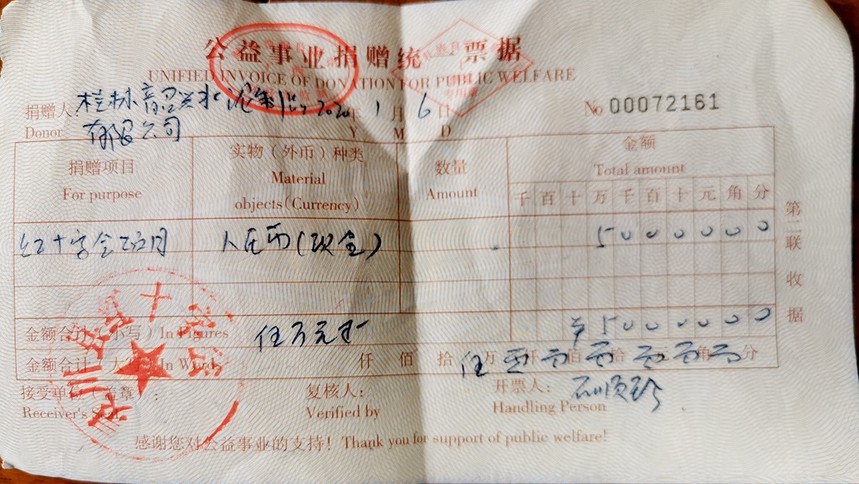 公益事业捐赠统 票据
UNIFIED INVOICE OF DONATION FOR PUBLIC WELFARE
捐赠人: 桂林 2020年 1月 6日 No 00072161
Donor 有限公司 Y M D
捐赠项目 实物（外币）种类 数量 金额
For purpose Material objects(Currency) Amount Total amount
千 百 十 万 千 百 十 元 角 分
红十字会 人民币(现金) 5000000
金额合计（小写）In Figures 伍万元 ¥5000000
金额合计（大写）In Words 仟 佰 拾 伍万 零 零百 零拾 零 零角 零分
接受单位（盖章）： 复核人： 开票人：
Receiver's Verified by Handling Person
感谢您对公益事业的支持！Thank you for support of public welfare!
第二联收据